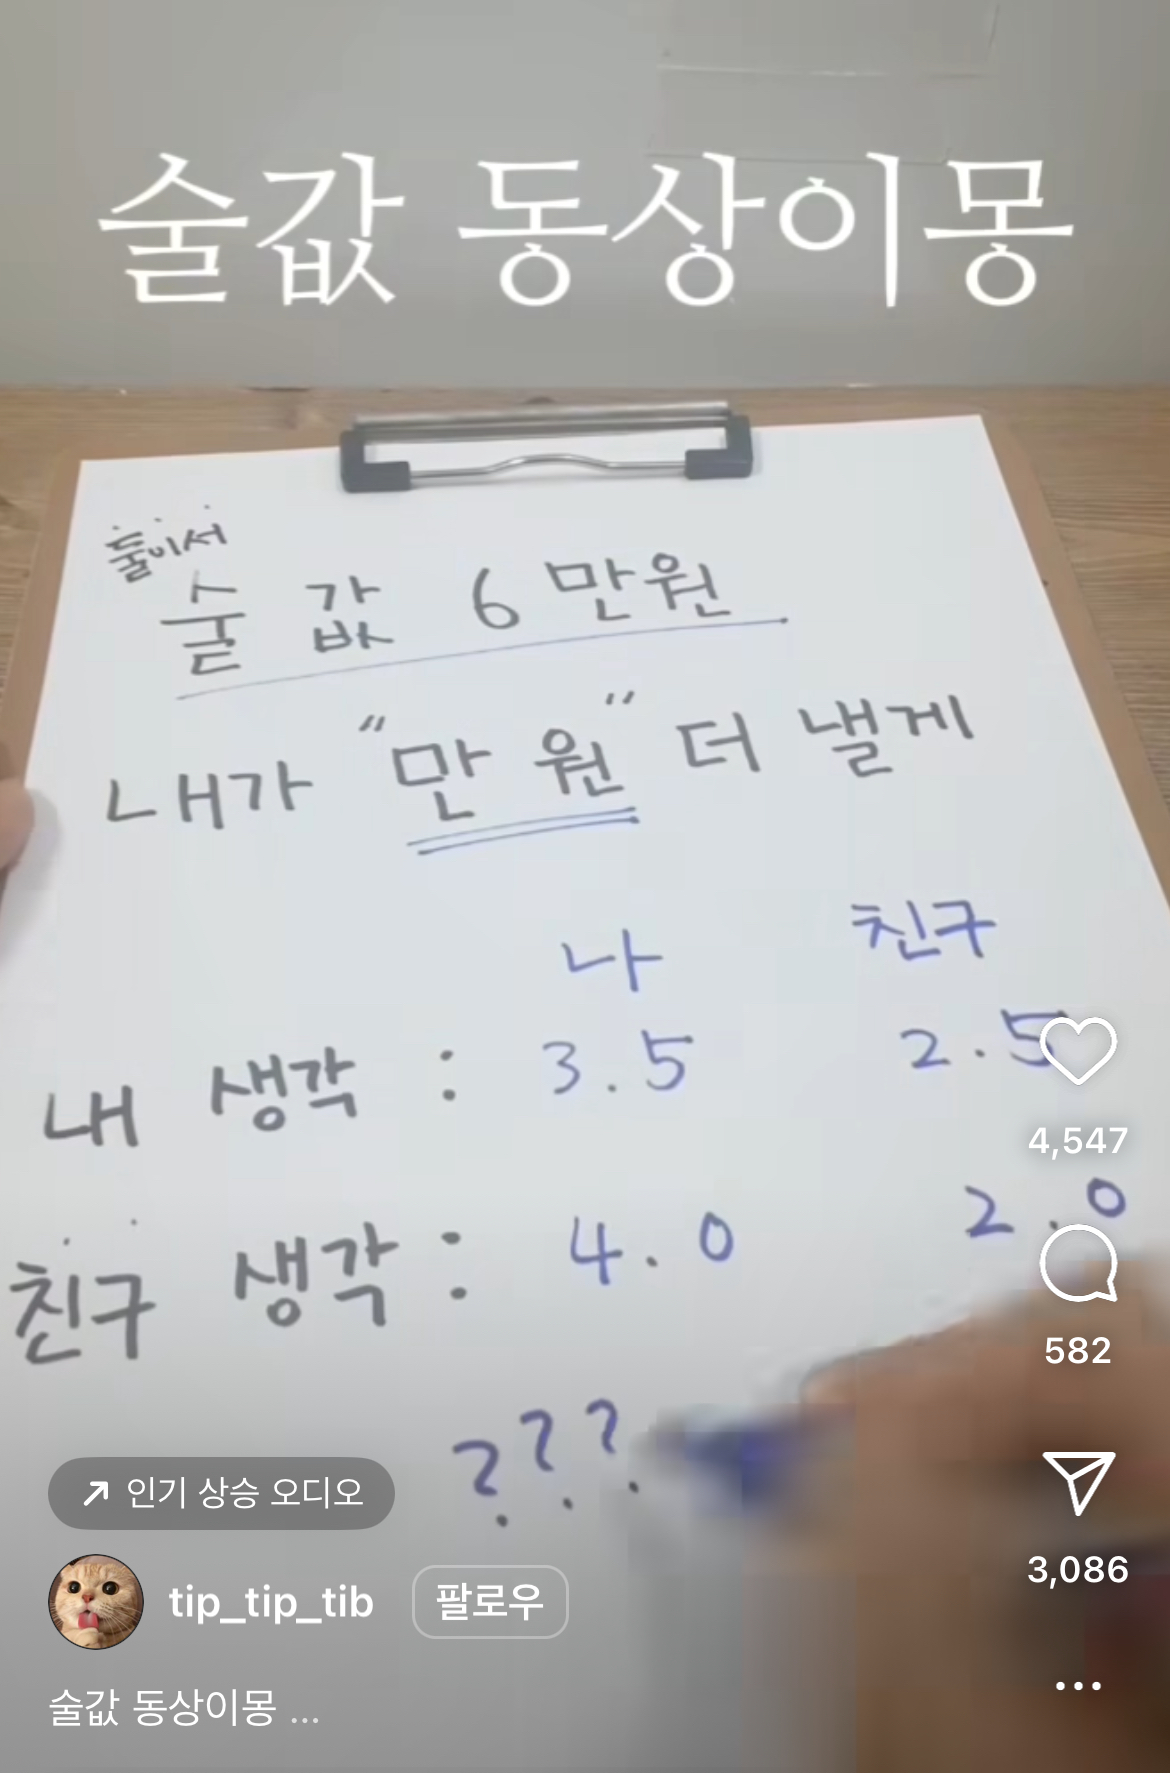 술값 동상이몽
둘이서
술값 6만원
내가 "만원" 더 낼게
나 친구
내 생각 : 3.5 2.5
친구 생각 : 4.0 2.0
???
4,547
582
3,086
인기 상승 오디오
tip_tip_tib 팔로우
술값 동상이몽 ...